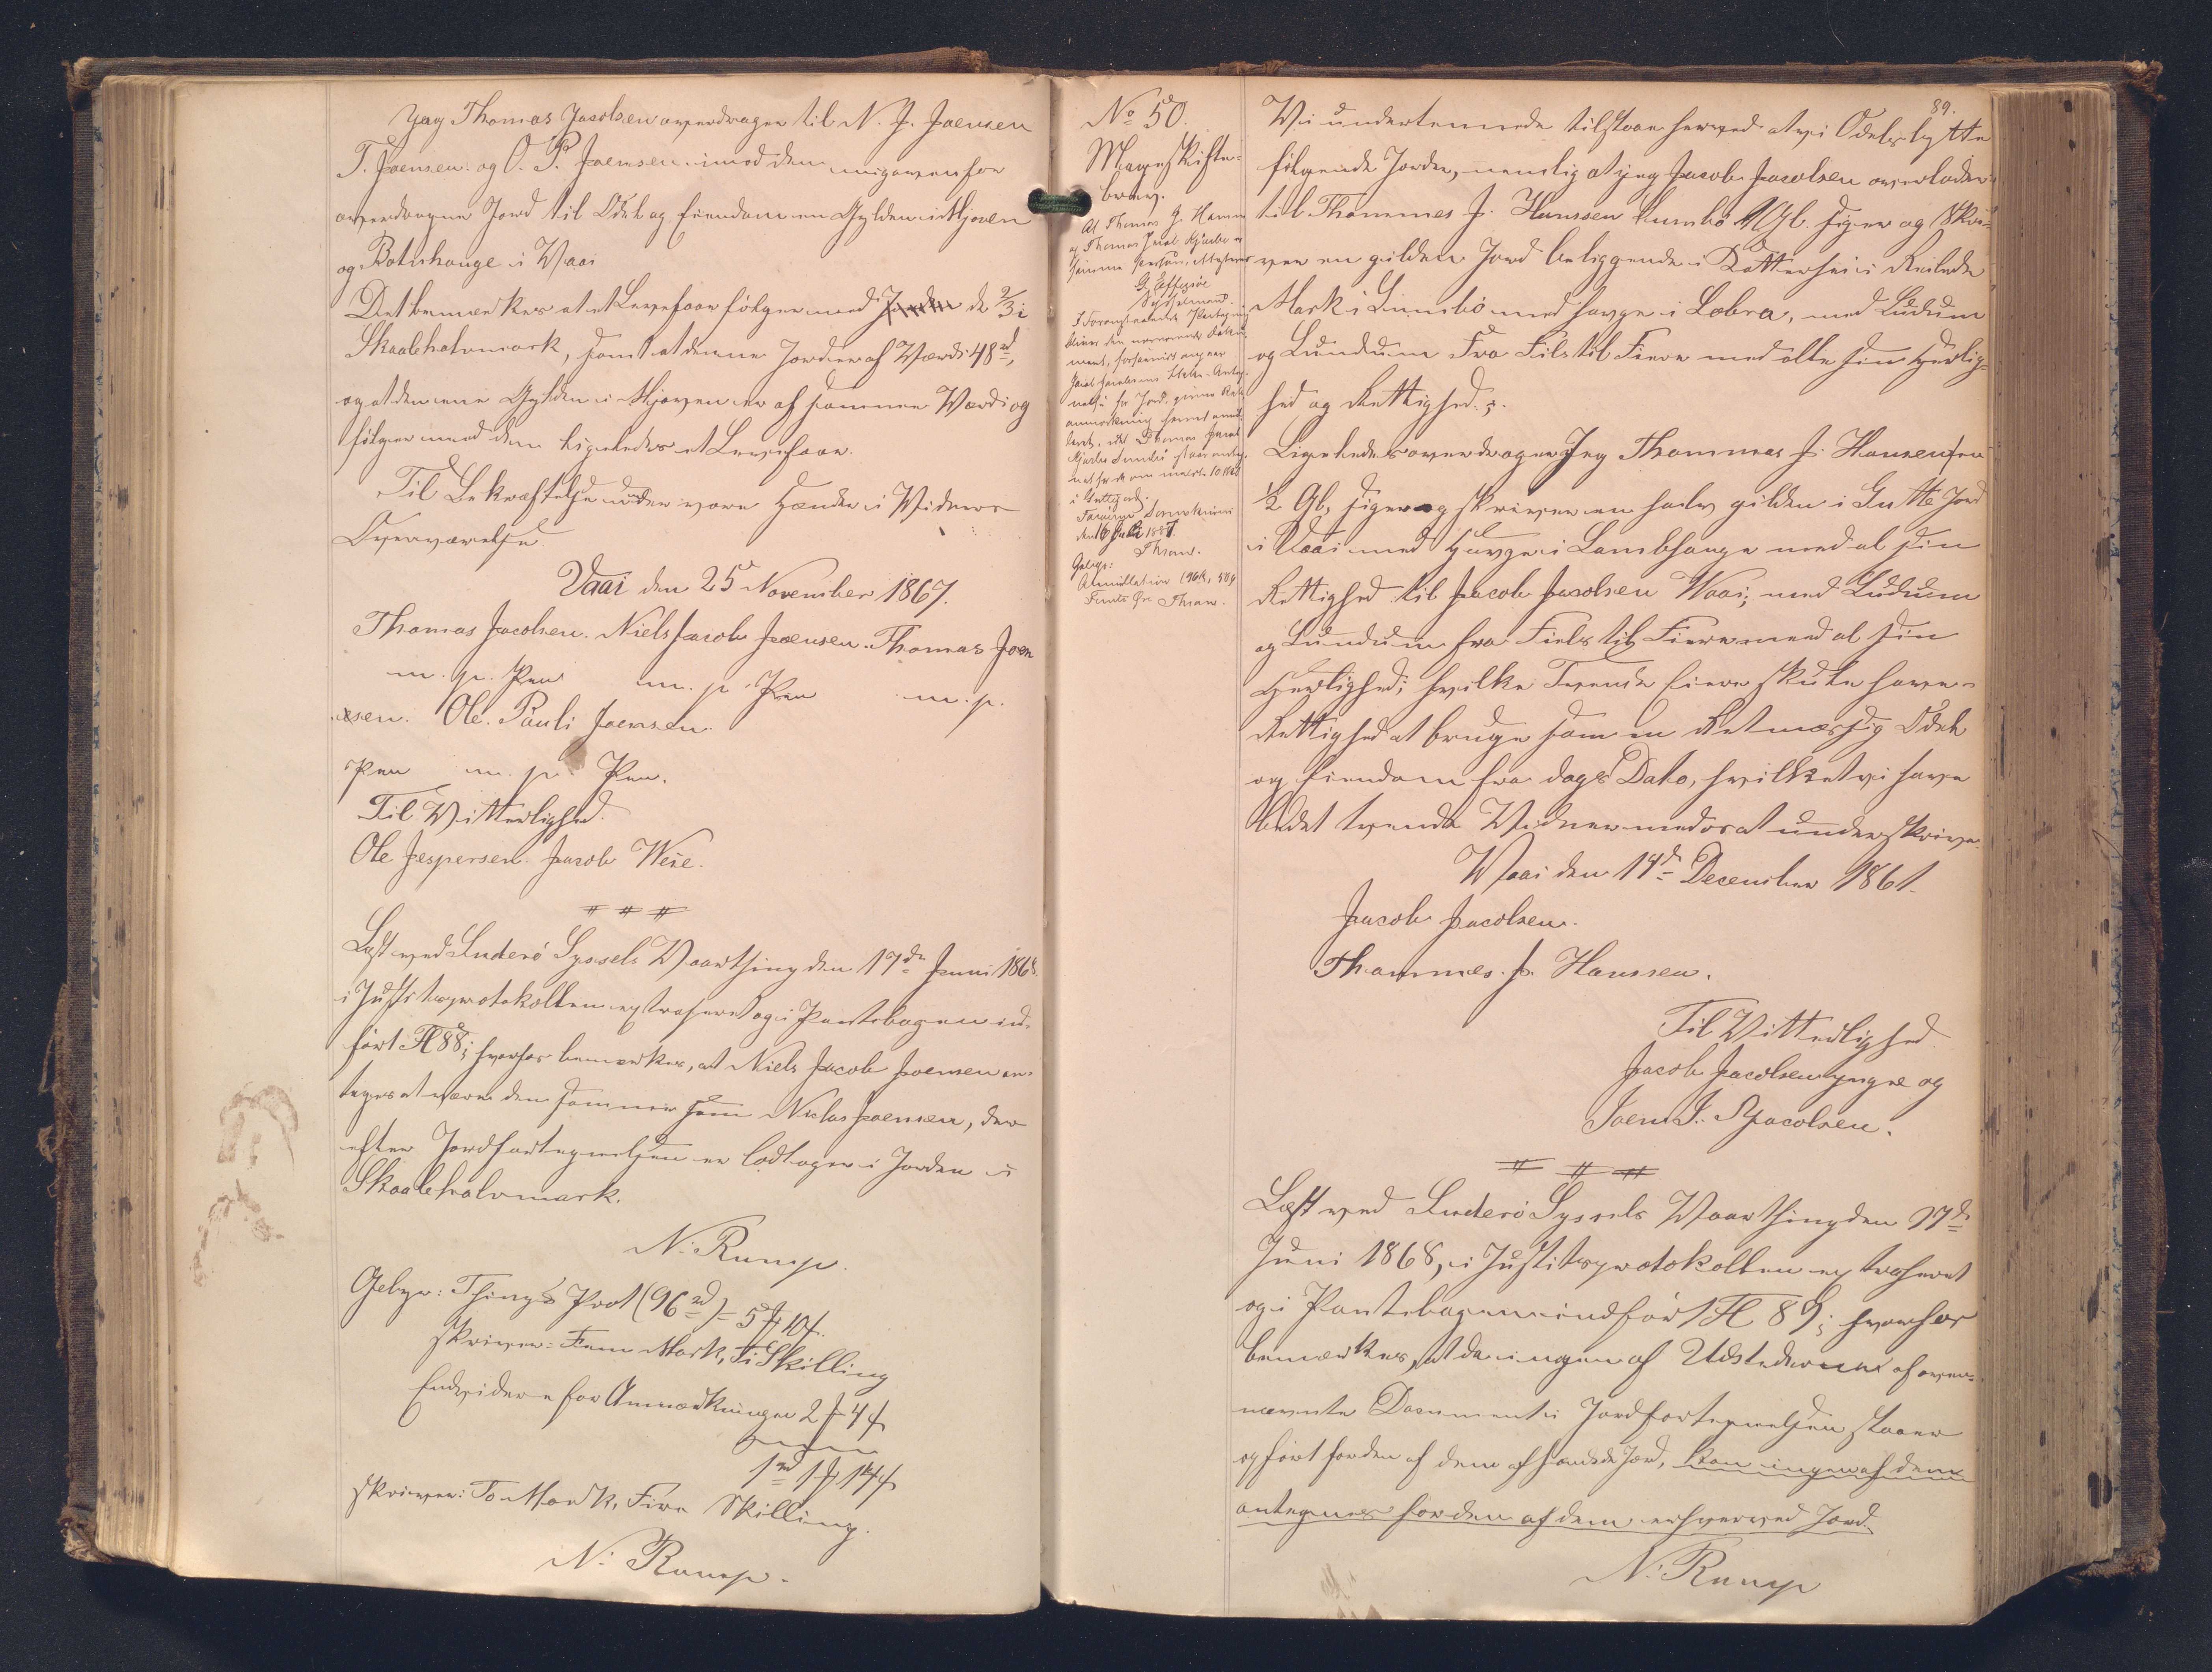 Jeg Thomas Jacobsen overdrager til N. J. Joensen
T. Joensen og O. P. Joensen imod den mig ovenfor
overdragne Jord til Odel og Eiendom en Gylden i Hjoven
og Botnhauge i Waai
Det bemærkes at et Leiefaar følger med Jorden de 2/3 i
Skaalehalvmark, samt at denne Jord er af Værdi 48 rd,
og at den ene Gylden i Hjoven er af samme Værdi og
følger med den ligeledes et Leiefaar.
Til Bekræftelse under vore Hænder i Vidners
Overværelse
Vaai den 25 November 1867.
Thomas Jacobsen. Niels Jacob Joensen. Thomas Joen
m. p. Pen m. p. Pen m. p.
sen. Ole Pauli Joensen.
Pen m. p. Pen.
Til Vitterlighed.
Ole Jespersen. Jacob Weie.
Læst ved Suderø Syssels Vaarthing den 17de Juni 1868.
i Justitsprotokollen extraheret og i Pantebogen ind-
ført Fl 88; hvorhos bemærkes, at Niels Jacob Joensen an-
tages at være den samme som Niclas Joensen, der
efter Jordfortegnelsen er lodtager i Jorden i
Skaalehalvmark.
N. Rump.
Gebyr: Things Prot (96 rd) = 5 10
skriver: Fem Mark, Ti Skilling
Endvidere for Anmærkningen 2 4
1 rd 1 14
skriver: To Mark, Fire Skilling.
N. Rump.
No 50.
Mageskifte-
brev.
At Thomas J. Hansen
og Thomas Jacob Kjærbo er
samme Person, attesteres
Sysselmand.
den 6 Juli 1887.
Thran.
Gebyr:
89.
Vi undertegnede tilstaae herved at vi Odelsbytte
følgende Jorder, nemlig at jeg Jacob Jacobsen overlader
til Thommes J. Hanssen Sumbø 1 Gl. siger og skri-
ver en gylden Jord beliggende i
Mark i Sumbø med Havge i Lobra, med Ludum
og Lundum Fra Fils til Fiere med alle sin Herlig-
hed og Rettighed.
Ligeledes overdrager Jeg Thommes J. Hansen for
1/2 Gl, siger og skriver en halv gylden i Jord
i Vaai med Havge i Lambhauge med al sin
Rettighed til Jacob Jacobsen Waai; med Ludum
og Lundum fra Fiels til Fiere med al sin
Herlighed; hvilke Tvende Eiere skulle have
Rettighed at bruge som en Retmæssig Odel
og Eiendom fra dags Dato, hvilket vi have
bedet tvende Vidner med os at underskrive.
Waai den 14de December 1861.
Jacob Jacobsen.
Thommes J. Hanssen.
Til Vitterlighed
Jacob Jacobsen yngre og
Joen J. Jacobsen.
Læst ved Suderø Syssels Vaarthing den 17de
Juni 1868, i Justitsprotokollen extraheret
og i Pantebogen indført Fl 89; hvorhos
bemærkes, at da ingen af Udstederne af oven-
nævnte Document i Jordfortegnelsen staaer
opført for den af dem afhændede Jord, kan ingen af dem
antegnes for den af dem erhverved Jord.
N. Rump